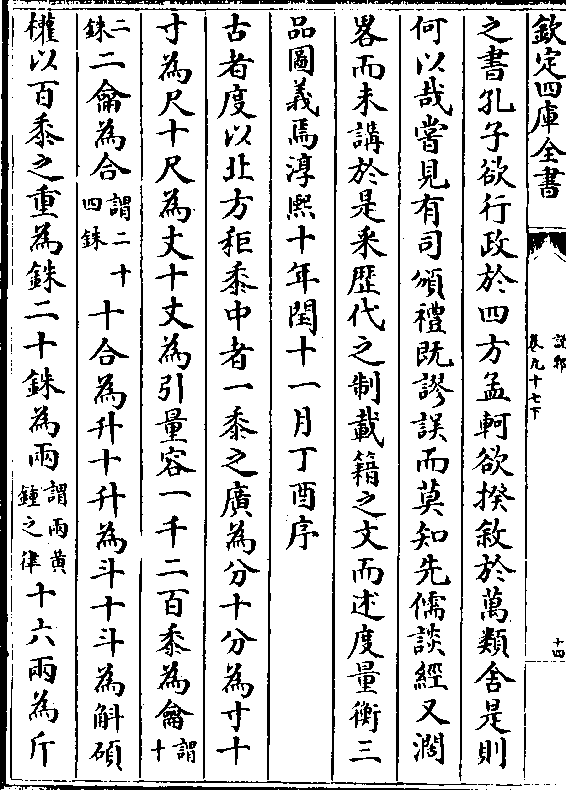 欽定四庫全書
說郛
卷九十七下
十四
之書孔子欲行政於四方孟軻欲揆敘於萬類舍是則
何以哉嘗見有司頒禮既謬誤而莫知先儒談經又濶
畧而未講於是采歴代之制載籍之文而述度量衡三
品圖義焉淳熙十年閏十一月丁酉序
古者度以北方秬黍中者一黍之廣為分十分為寸十
寸為尺十尺為丈十丈為引量容一千二百黍為龠謂十
二銖二龠為合謂二十四銖十合為升十升為斗十斗為斛碩
權以百黍之重為銖二十銖為兩謂兩黄鍾之律十六兩為斤